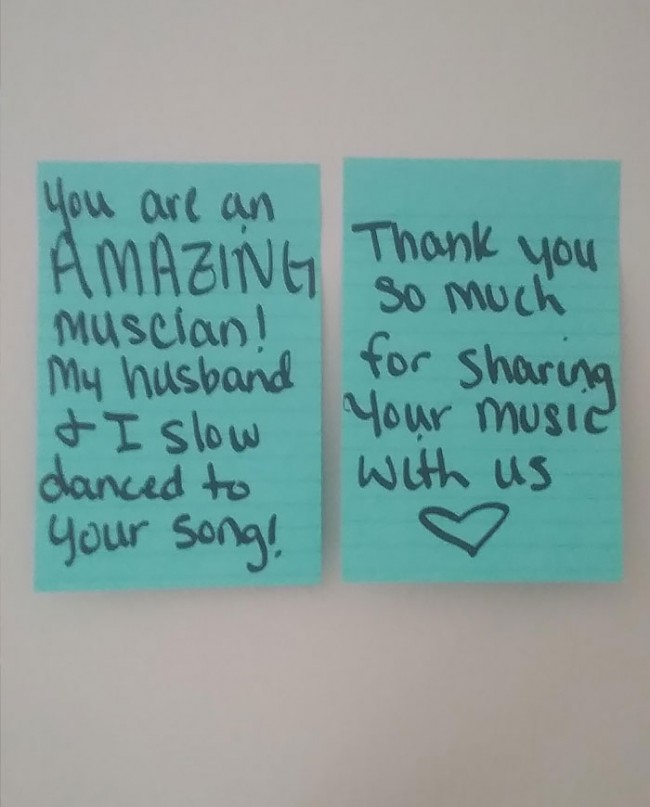 you are an
AMAZING
muscian!
My husband
& I slow
danced to
your song!
Thank you
so much
for sharing
your music
with us